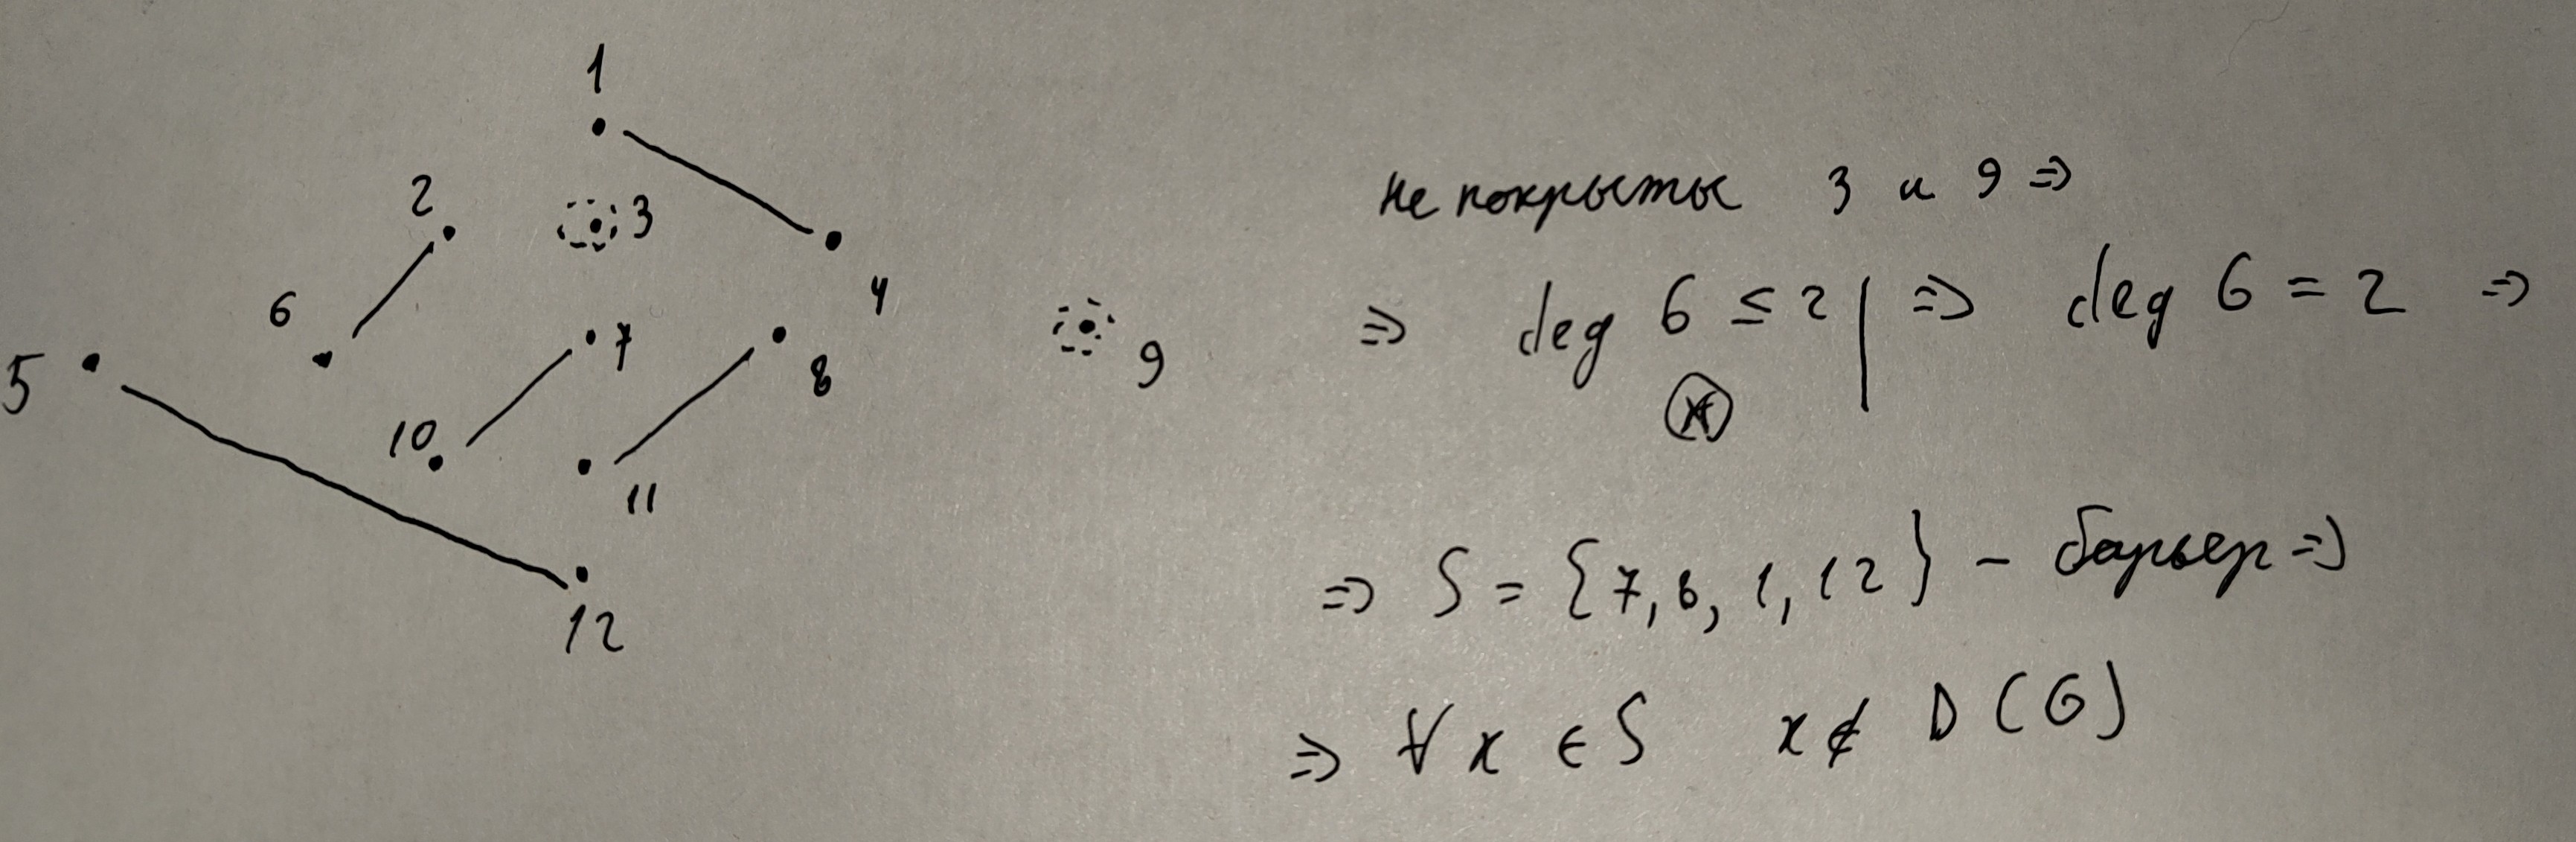 1
2
3
4
6
7
5
8
9
10
11
12
не покрыты 3 и 9 ⇒
⇒ deg G ≤ 2 | ⇒ deg G = 2 ⇒
*
⇒ S = {7, 8, 1, 12} - барьер ⇒
⇒ ∀ x ∈ S x ∉ D(G)